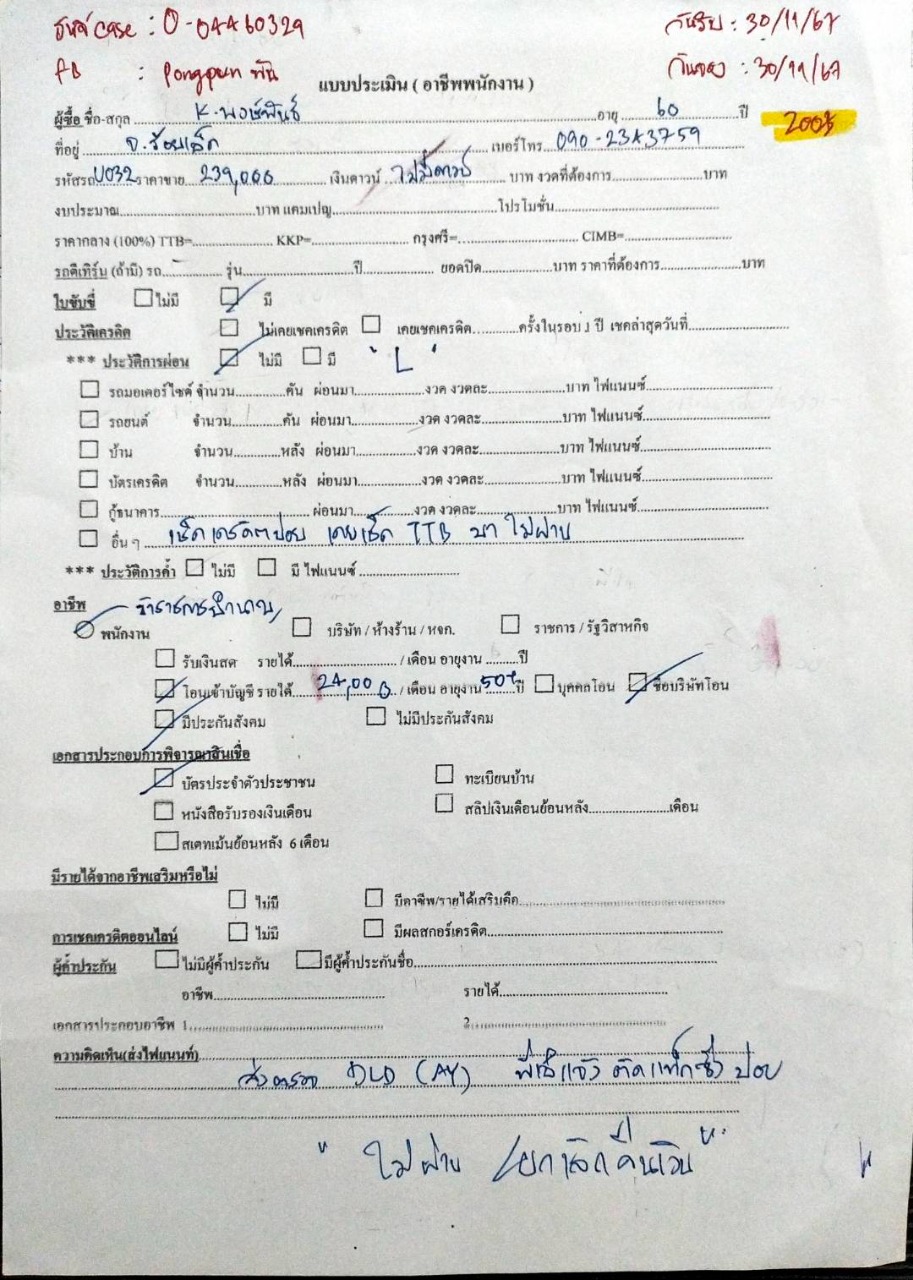 รหัส case : O-OAA60329
วันรับ : 30/11/67
FB : Pongpun พัน
วันจอง : 30/11/67
แบบประเมิน ( อาชีพพนักงาน )
ผู้ซื้อ ชื่อ-สกุล K. พงษ์พันธ์ อายุ 60 ปี
ที่อยู่ จ.ร้อยเอ็ด เบอร์โทร 090-23A3759
รหัสรถ U032 ราคาขาย 239,000 เงินดาวน์ ไม่มีดาวน์ บาท งวดที่ต้องการ บาท
งบประมาณ บาท แคมเปญ โปรโมชั่น
ราคากลาง (100%) TTB= KKP= กรุงศรี= CIMB=
รถตีเทิร์น (ถ้ามี) รถ รุ่น ปี ยอดปิด บาท ราคาที่ต้องการ บาท
ใบขับขี่ ไม่มี มี
ประวัติเครดิต ไม่เคยเชคเครดิต เคยเชคเครดิต ครั้งในรอบ 1 ปี เชคล่าสุดวันที่
*** ประวัติการผ่อน ไม่มี มี " L "
รถมอเตอร์ไซด์ จำนวน คัน ผ่อนมา งวด งวดละ บาท ไฟแนนซ์
รถยนต์ จำนวน คัน ผ่อนมา งวด งวดละ บาท ไฟแนนซ์
บ้าน จำนวน หลัง ผ่อนมา งวด งวดละ บาท ไฟแนนซ์
บัตรเครดิต จำนวน หลัง ผ่อนมา งวด งวดละ บาท ไฟแนนซ์
กู้ธนาคาร ผ่อนมา งวด งวดละ บาท ไฟแนนซ์
อื่น ๆ เช็คเครดิตบ่อย เคยเช็ค TTB มา ไม่ผ่าน
*** ประวัติการค้ำ ไม่มี มี ไฟแนนซ์
อาชีพ ข้าราชการบำนาญ
พนักงาน บริษัท / ห้างร้าน / หจก. ราชการ / รัฐวิสาหกิจ
รับเงินสด รายได้ / เดือน อายุงาน ปี
โอนเข้าบัญชี รายได้ 24,000 / เดือน อายุงาน 50+ ปี บุคคลโอน ชื่อบริษัทโอน
มีประกันสังคม ไม่มีประกันสังคม
เอกสารประกอบการพิจารณาสินเชื่อ
บัตรประจำตัวประชาชน ทะเบียนบ้าน
หนังสือรับรองเงินเดือน สลิปเงินเดือนย้อนหลัง เดือน
สเตทเม้นย้อนหลัง 6 เดือน
มีรายได้จากอาชีพเสริมหรือไม่
ไม่มี มีอาชีพ/รายได้เสริมคือ
การเชคเครดิตออนไลน์ ไม่มี มีผลสกอร์เครดิต
ผู้ค้ำประกัน ไม่มีผู้ค้ำประกัน มีผู้ค้ำประกันชื่อ
อาชีพ รายได้
เอกสารประกอบอาชีพ 1. 2.
ความคิดเห็น(ส่งไฟแนนท์)
ส่งตรวจ (AY) บ่อย
" ไม่ผ่าน ยกเลิกคืนเงิน "